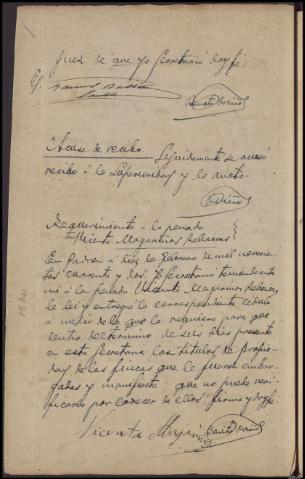 Juez de que yo Secretario doy fé.
Acuse de recibo. Seguidamente se acusó
recibo á la Superioridad y lo anoto.
Requerimiento a la penada
Vicenta Magariños
En Padron á diez de Febrero de mil novecien-
tos cuarenta y dos. El Secretario teniendo ante
mi á la penada Vicenta Magariños
le lei y entregué la correspondiente cédula
á medio de la que la requiero para que
dentro del termino de seis dias presente
en esta Secretaria los titulos de propie-
dad de las fincas que le fueron embar-
gadas y manifestó que no puede veri-
ficarlo por carecer de ellos firma y doy fé.
Vicenta Magariños